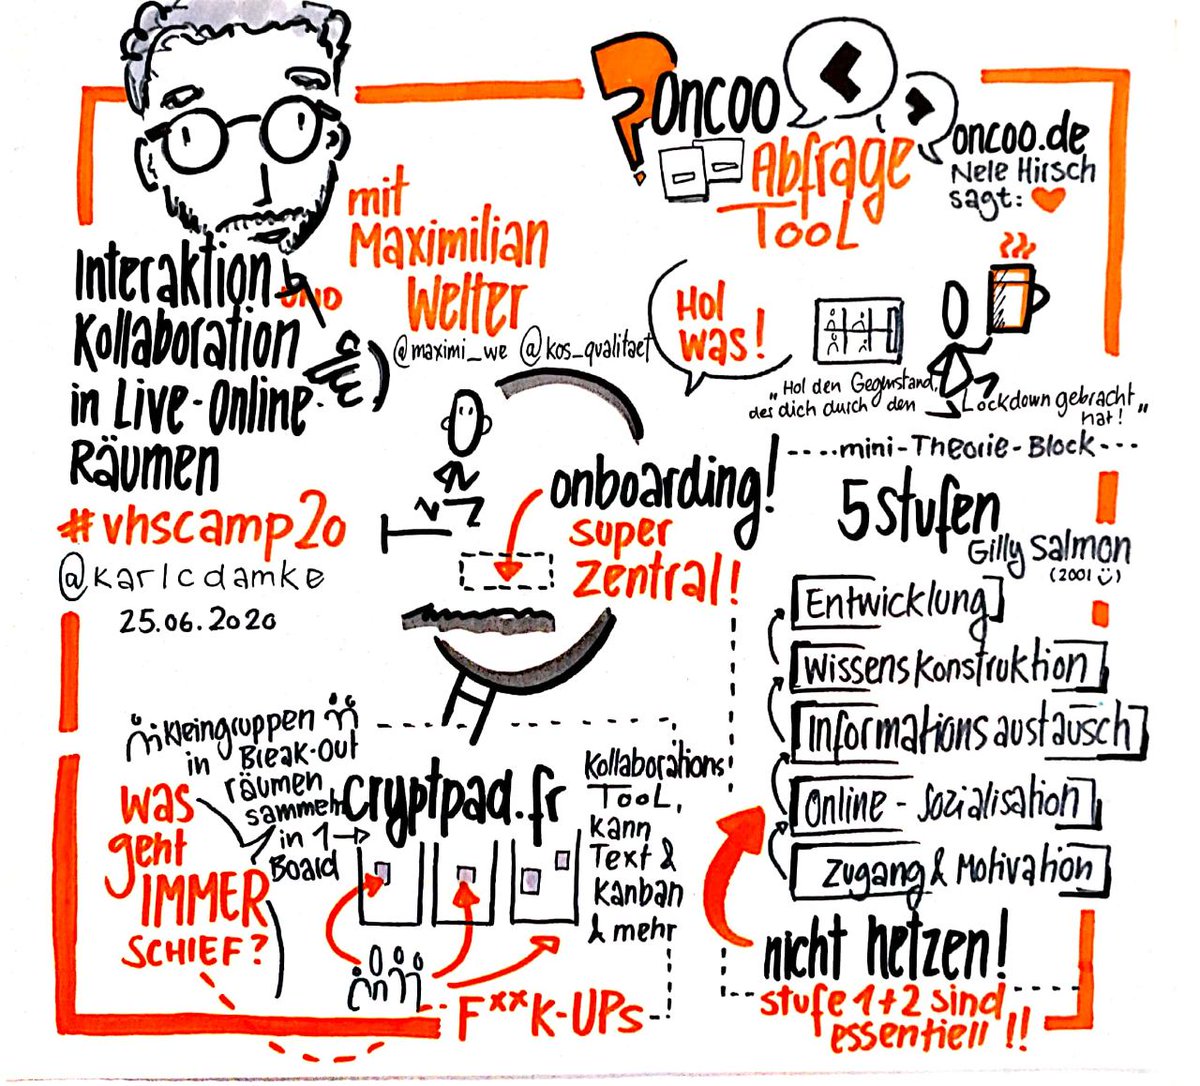 Interaktion
UND
Kollaboration
in Live-Online-
Räumen
#vhscamp20
@karlcdamke
25.06.2020
mit
Maximilian
Welter
@maximi_we @kos_qualitaet
?
oncoo
Abfrage
TOOL
oncoo.de
Nele Hirsch
sagt: ❤
Hol
was!
„Hol den Gegenstand,
der dich durch den Lockdown gebracht
hat!"
onboarding!
super
zentral!
----mini-Theorie-Block---
5 Stufen
Gilly Salmon
(2001 ☺)
Entwicklung
Wissenskonstruktion
Informationsaustausch
Online-Sozialisation
Zugang & Motivation
nicht hetzen!
stufe 1+2 sind
essentiell!!
Kleingruppen
in Break-Out
räumen
sammeln
in 1 →
Board
Was
geht
IMMER
SCHIEF?
cryptpad.fr
Kollaborations
TOOL,
kann
Text &
Kanban
& mehr
F**K-UPs